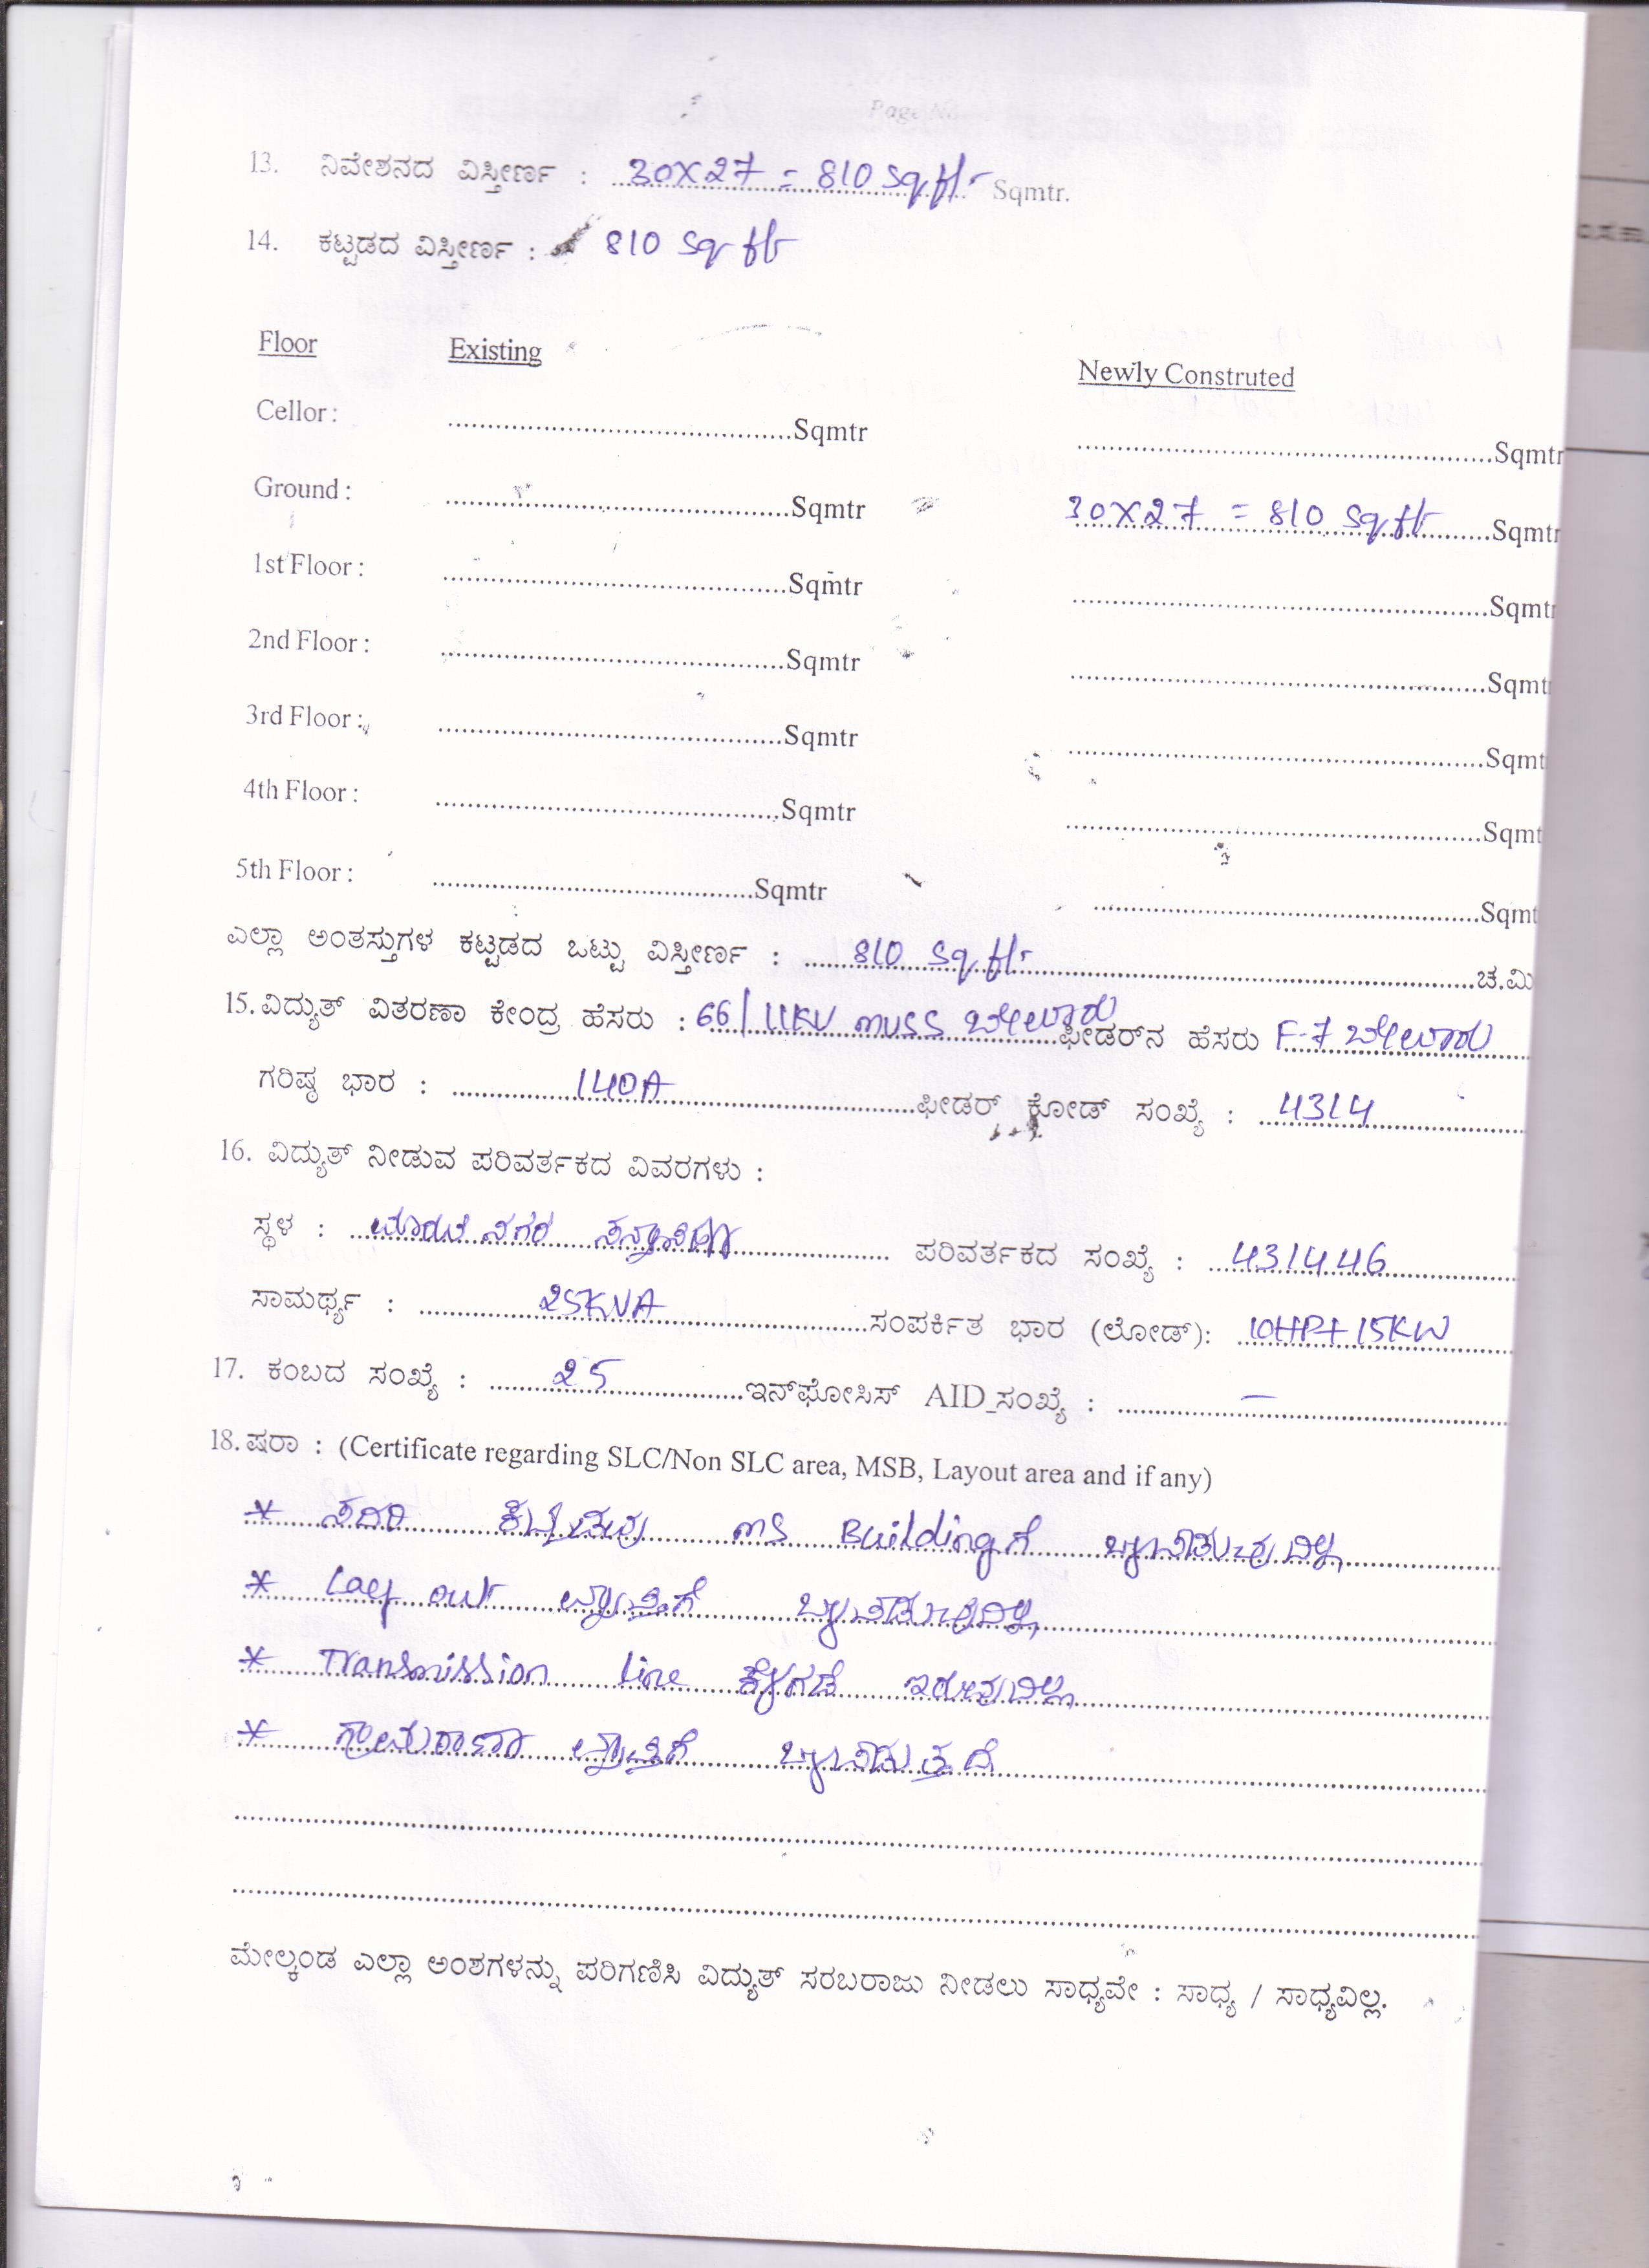 Page No
13. ನಿವೇಶನದ ವಿಸ್ತೀರ್ಣ : 30X27 = 810 Sq.ft. Sqmtr.
14. ಕಟ್ಟಡದ ವಿಸ್ತೀರ್ಣ : 810 Sq ft
Floor Existing Newly Construted
Cellor : ........Sqmtr ........Sqmtr
Ground : ........Sqmtr 30X27 = 810 Sq.ft ........Sqmtr
1st Floor : ........Sqmtr ........Sqmtr
2nd Floor : ........Sqmtr ........Sqmt
3rd Floor : ........Sqmtr ........Sqmt
4th Floor : ........Sqmtr ........Sqmt
5th Floor : ........Sqmtr ........Sqmt
ಎಲ್ಲಾ ಅಂತಸ್ತುಗಳ ಕಟ್ಟಡದ ಒಟ್ಟು ವಿಸ್ತೀರ್ಣ : 810 Sq.ft. ........ಚ.ಮಿ
15. ವಿದ್ಯುತ್ ವಿತರಣಾ ಕೇಂದ್ರ ಹೆಸರು : 66/11KV MUSS ಬೇಲೂರು ಫೀಡರ್‌ನ ಹೆಸರು F-7 ಬೇಲೂರು
ಗರಿಷ್ಠ ಭಾರ : 140A ಫೀಡರ್ ಕೋಡ್ ಸಂಖ್ಯೆ : 4314
16. ವಿದ್ಯುತ್ ನೀಡುವ ಪರಿವರ್ತಕದ ವಿವರಗಳು :
ಸ್ಥಳ : ನಗರ ಪರಿವರ್ತಕದ ಸಂಖ್ಯೆ : 431446
ಸಾಮರ್ಥ್ಯ : 25KVA ಸಂಪರ್ಕಿತ ಭಾರ (ಲೋಡ್): 10HP+15KW
17. ಕಂಬದ ಸಂಖ್ಯೆ : 25 ಇನ್‌ಫೋಸಿಸ್ AID_ಸಂಖ್ಯೆ : —
18. ಷರಾ : (Certificate regarding SLC/Non SLC area, MSB, Layout area and if any)
* ಸದರಿ ಕಟ್ಟಡವು MS Buildingಗೆ ಒಳಪಡುವುದಿಲ್ಲ
* Lay out ವ್ಯಾಪ್ತಿಗೆ ಒಳಪಡುವುದಿಲ್ಲ
* Transmission line ಕೆಳಗಡೆ ಇರುವುದಿಲ್ಲ
* ಗ್ರಾಮಠಾಣಾ ವ್ಯಾಪ್ತಿಗೆ ಒಳಪಡುತ್ತದೆ
ಮೇಲ್ಕಂಡ ಎಲ್ಲಾ ಅಂಶಗಳನ್ನು ಪರಿಗಣಿಸಿ ವಿದ್ಯುತ್ ಸರಬರಾಜು ನೀಡಲು ಸಾಧ್ಯವೇ : ಸಾಧ್ಯ / ಸಾಧ್ಯವಿಲ್ಲ.